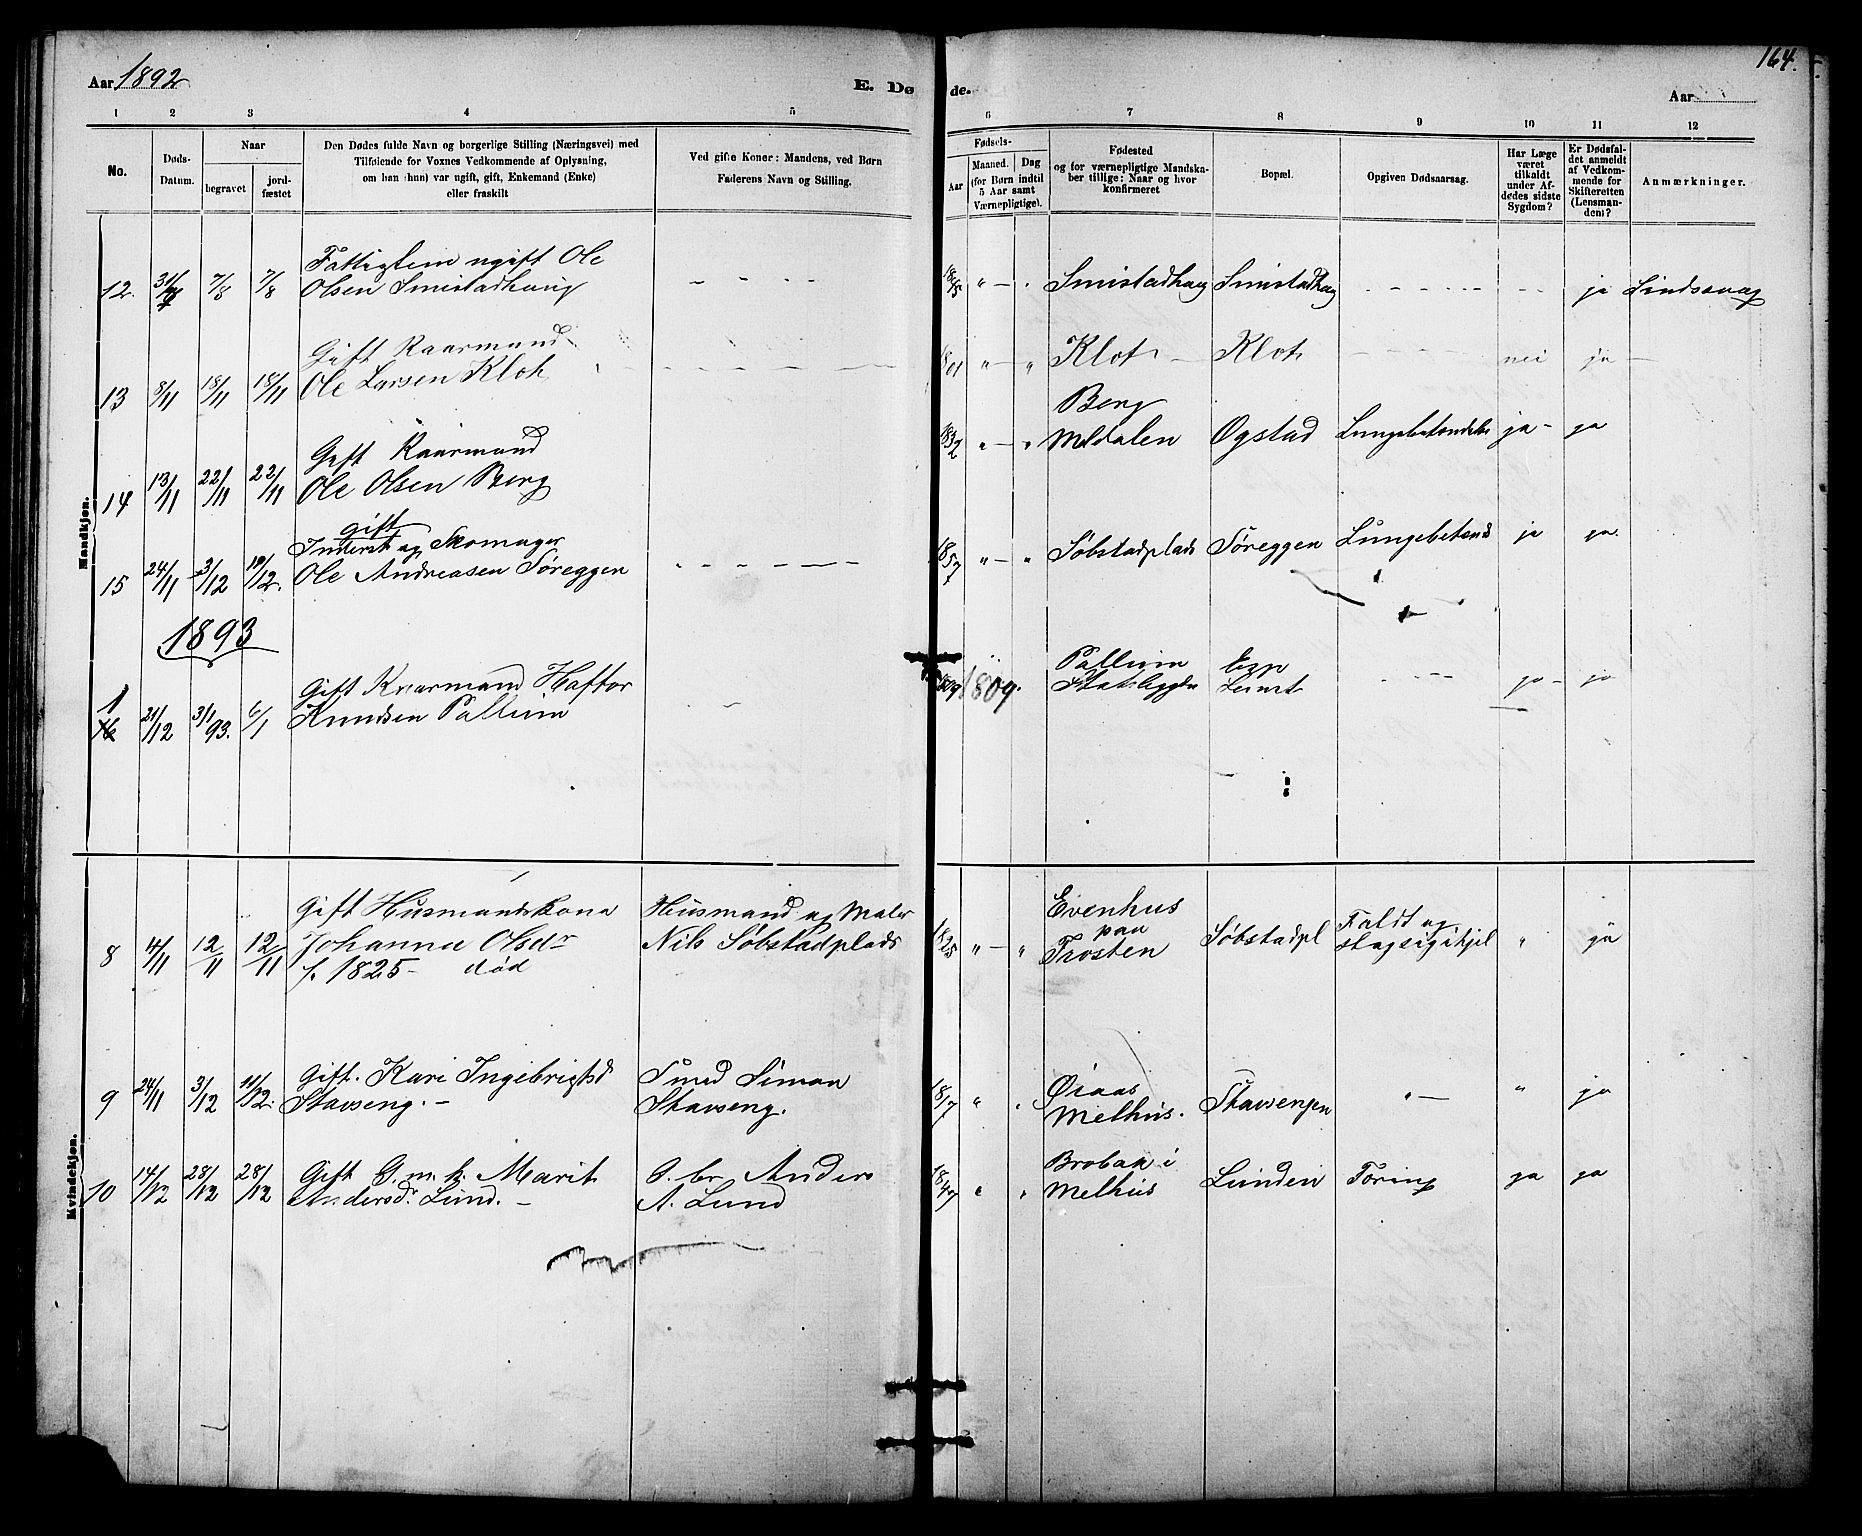 Aar 1892
E. Dø de.
164.
Aar
1 2 3 4 5 6 7 8 9 10 11 12
No.
Døds-
Datum.
Naar
begravet
jord-
fæstet
Den Dødes fulde Navn og borgerlige Stilling (Næringsvei) med
Tilføiende for Voxnes Vedkommende af Oplysning,
om han (hun) var ugift, gift, Enkemand (Enke)
eller fraskilt
Ved gifte Koner: Mandens, ved Børn
Faderens Navn og Stilling.
Fødsels-
Aar
Maaned. Dag
(for Børn indtil
5 Aar samt
Værnepligtige).
Fødested
og for værnepligtige Mandska-
ber tillige: Naar og hvor
konfirmeret
Bopæl.
Opgiven Dødsaarsag.
Har Læge
været
tilkaldt
under Af-
dødes sidste
Sygdom?
Er Dødsfal-
det anmeldt
af Vedkom-
mende for
Skifteretten
(Lensman-
den)?
Anmærkninger.
Mandkjøn.
Fattiglem ugift Ole
12. 7/8 7/8 Olsen Smistadhaug Smistadhaug Smistadhaug ja Sindssvag
Gift Kaarmand
13 8/11 18/11 18/11 Ole Larsen Klot 1801 Klot Klot nei ja
Berg
Gift Kaarmand
14 13/11 22/11 22/11 Ole Olsen Berg 1832 Meldalen Ogstad Lungebetændelse ja ja
gift
Inderst og Skomager
15 24/11 3/12 19/12. Ole Andreasen Søreggen 1857 Søbstadplads Søreggen Lungebetænd ja ja.
1893
Gift Kaarmand Haftor Pallium
1 16 21/12 3/1 93. 6/1 Knudsen Pallium 1809. ja ja
Kvindekjøn.
Gift Husmandskona Husmand og Maler Evenhus Faldt og
8 4/11 12/11 12/11 Johanna Olsdr Nils Søbstadplads 1825 paa Søbstadpl ja
f. 1825 – død Frosten
Gift. Kari Ingebrigtsd Smed Simon Øiaas
9 24/11 3/12 11/12. Stavseng. – Stavseng. 1817 Melhus. Stavsengen ja
Gift G. m. k. Marit G. br Anders Brobak i
10 14/12 28/12 28/12 Andersdr Lund. – A. Lund 1847 Melhus Lunden Tæring ja ja